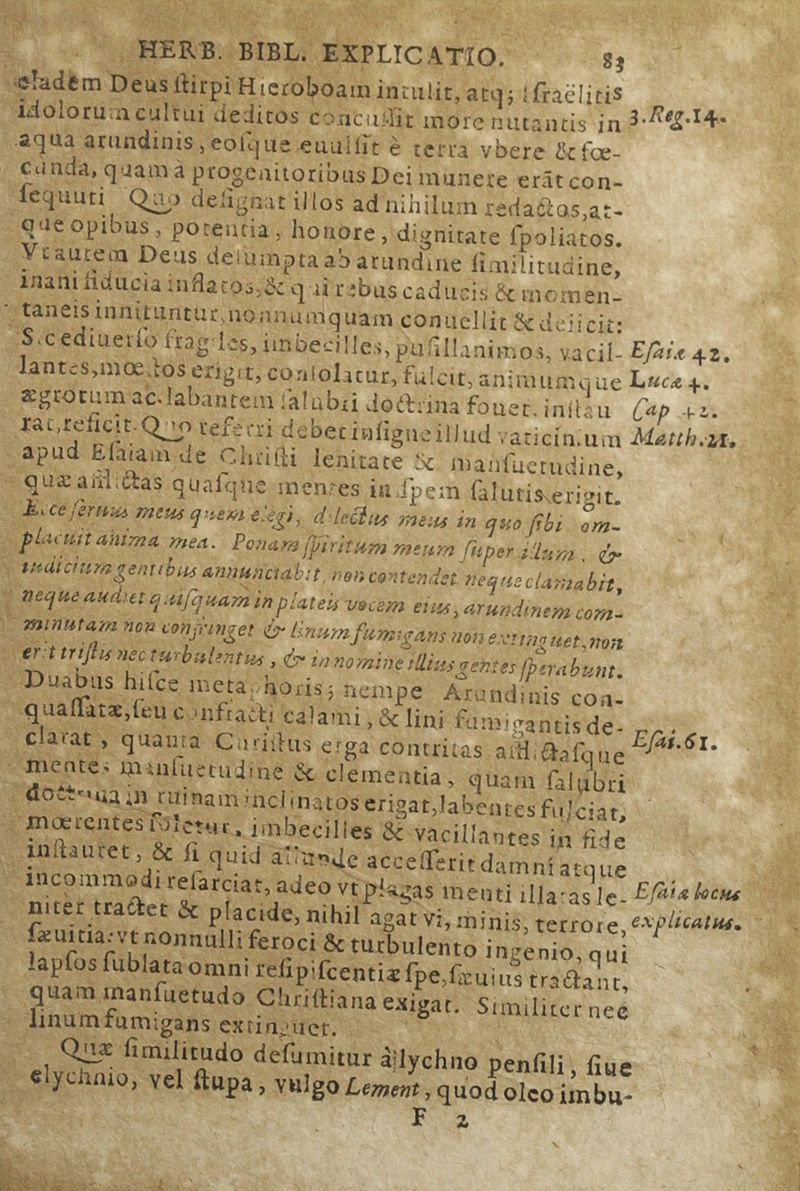 HERB. BIBL. EXPLICATIO. 83
cladem Deus ſtirpi Hieroboam intulit, atq; Iſraëlitis
idolorum cultui deditos concuſſit more nutantis in 3.Reg.14.
aqua arundinis, eoſque euulſit è terra vbere & fœ-
cunda, quam à progenitoribus Dei munere erãt con-
ſequuti. Quo deſignat illos ad nihilum redactos, at-
que opibus, potentia, honore, dignitate ſpoliatos.
Vt autem Deus deſumpta ab arundine ſimilitudine,
inani fiducia inflatos, & qui rebus caducis & momen-
taneis innituntur, nonnumquam conuellit & deiicit:
Sic ediuerſo fragiles, imbecilles, puſillanimos, vacil- Eſaiæ 42.
lantes, mœſtos erigit, conſolatur, fulcit, animumque Lucæ 4.
ægrotum ac labantem ſalubri doctrina fouet, inſtau Cap 42.
rat, reficit. Quo referri debet inſigne illud vaticinium Matth.21.
apud Eſaiam de Chriſti lenitate & manſuetudine,
quæ afflictas quaſque mentes in ſpem ſalutis erigit.
Ecce ſeruus meus quem elegi, dilectus meus in quo ſibi com-
placuit anima mea. Ponam ſpiritum meum ſuper illum, &
iudicium gentibus annunciabit, non contendet neque clamabit,
neque audiet quiſquam in plateis vocem eius, arundinem com-
minutam non confringet & linum fumigans non extinguet, non
erit triſtis nec turbulentus, & in nomine illius gentes ſperabunt.
Duabus hiſce metaphoris; nempe Arundinis con-
quaſſatæ, ſeu confracti calami, & lini fumigantis de-
clarat, quanta Chriſtus erga contritas afflictaſque Eſai.61.
mentes manſuetudine & clementia, quam ſalubri
doctrina in ruinam inclinatos erigat, labentes fulciat,
mœrentes ſoletur, imbecilles & vacillantes in fide
inſtauret, & ſi quid aliunde acceſſerit damni atque
incommodi reſarciat, adeo vt plagas menti illatas le- Eſaiæ locus
niter tractet & placide, nihil agat vi, minis, terrore, explicatus.
ſæuitia: vt nonnulli feroci & turbulento ingenio, qui
lapſos ſublata omni reſipiſcentiæ ſpe, ſæuius tractant,
quam manſuetudo Chriſtiana exigat. Similiter nec
linum fumigans extinguet.
Quæ ſimilitudo deſumitur à lychno penſili, ſiue
elychnio, vel ſtupa, vulgo Lement, quod oleo imbu-
F 2